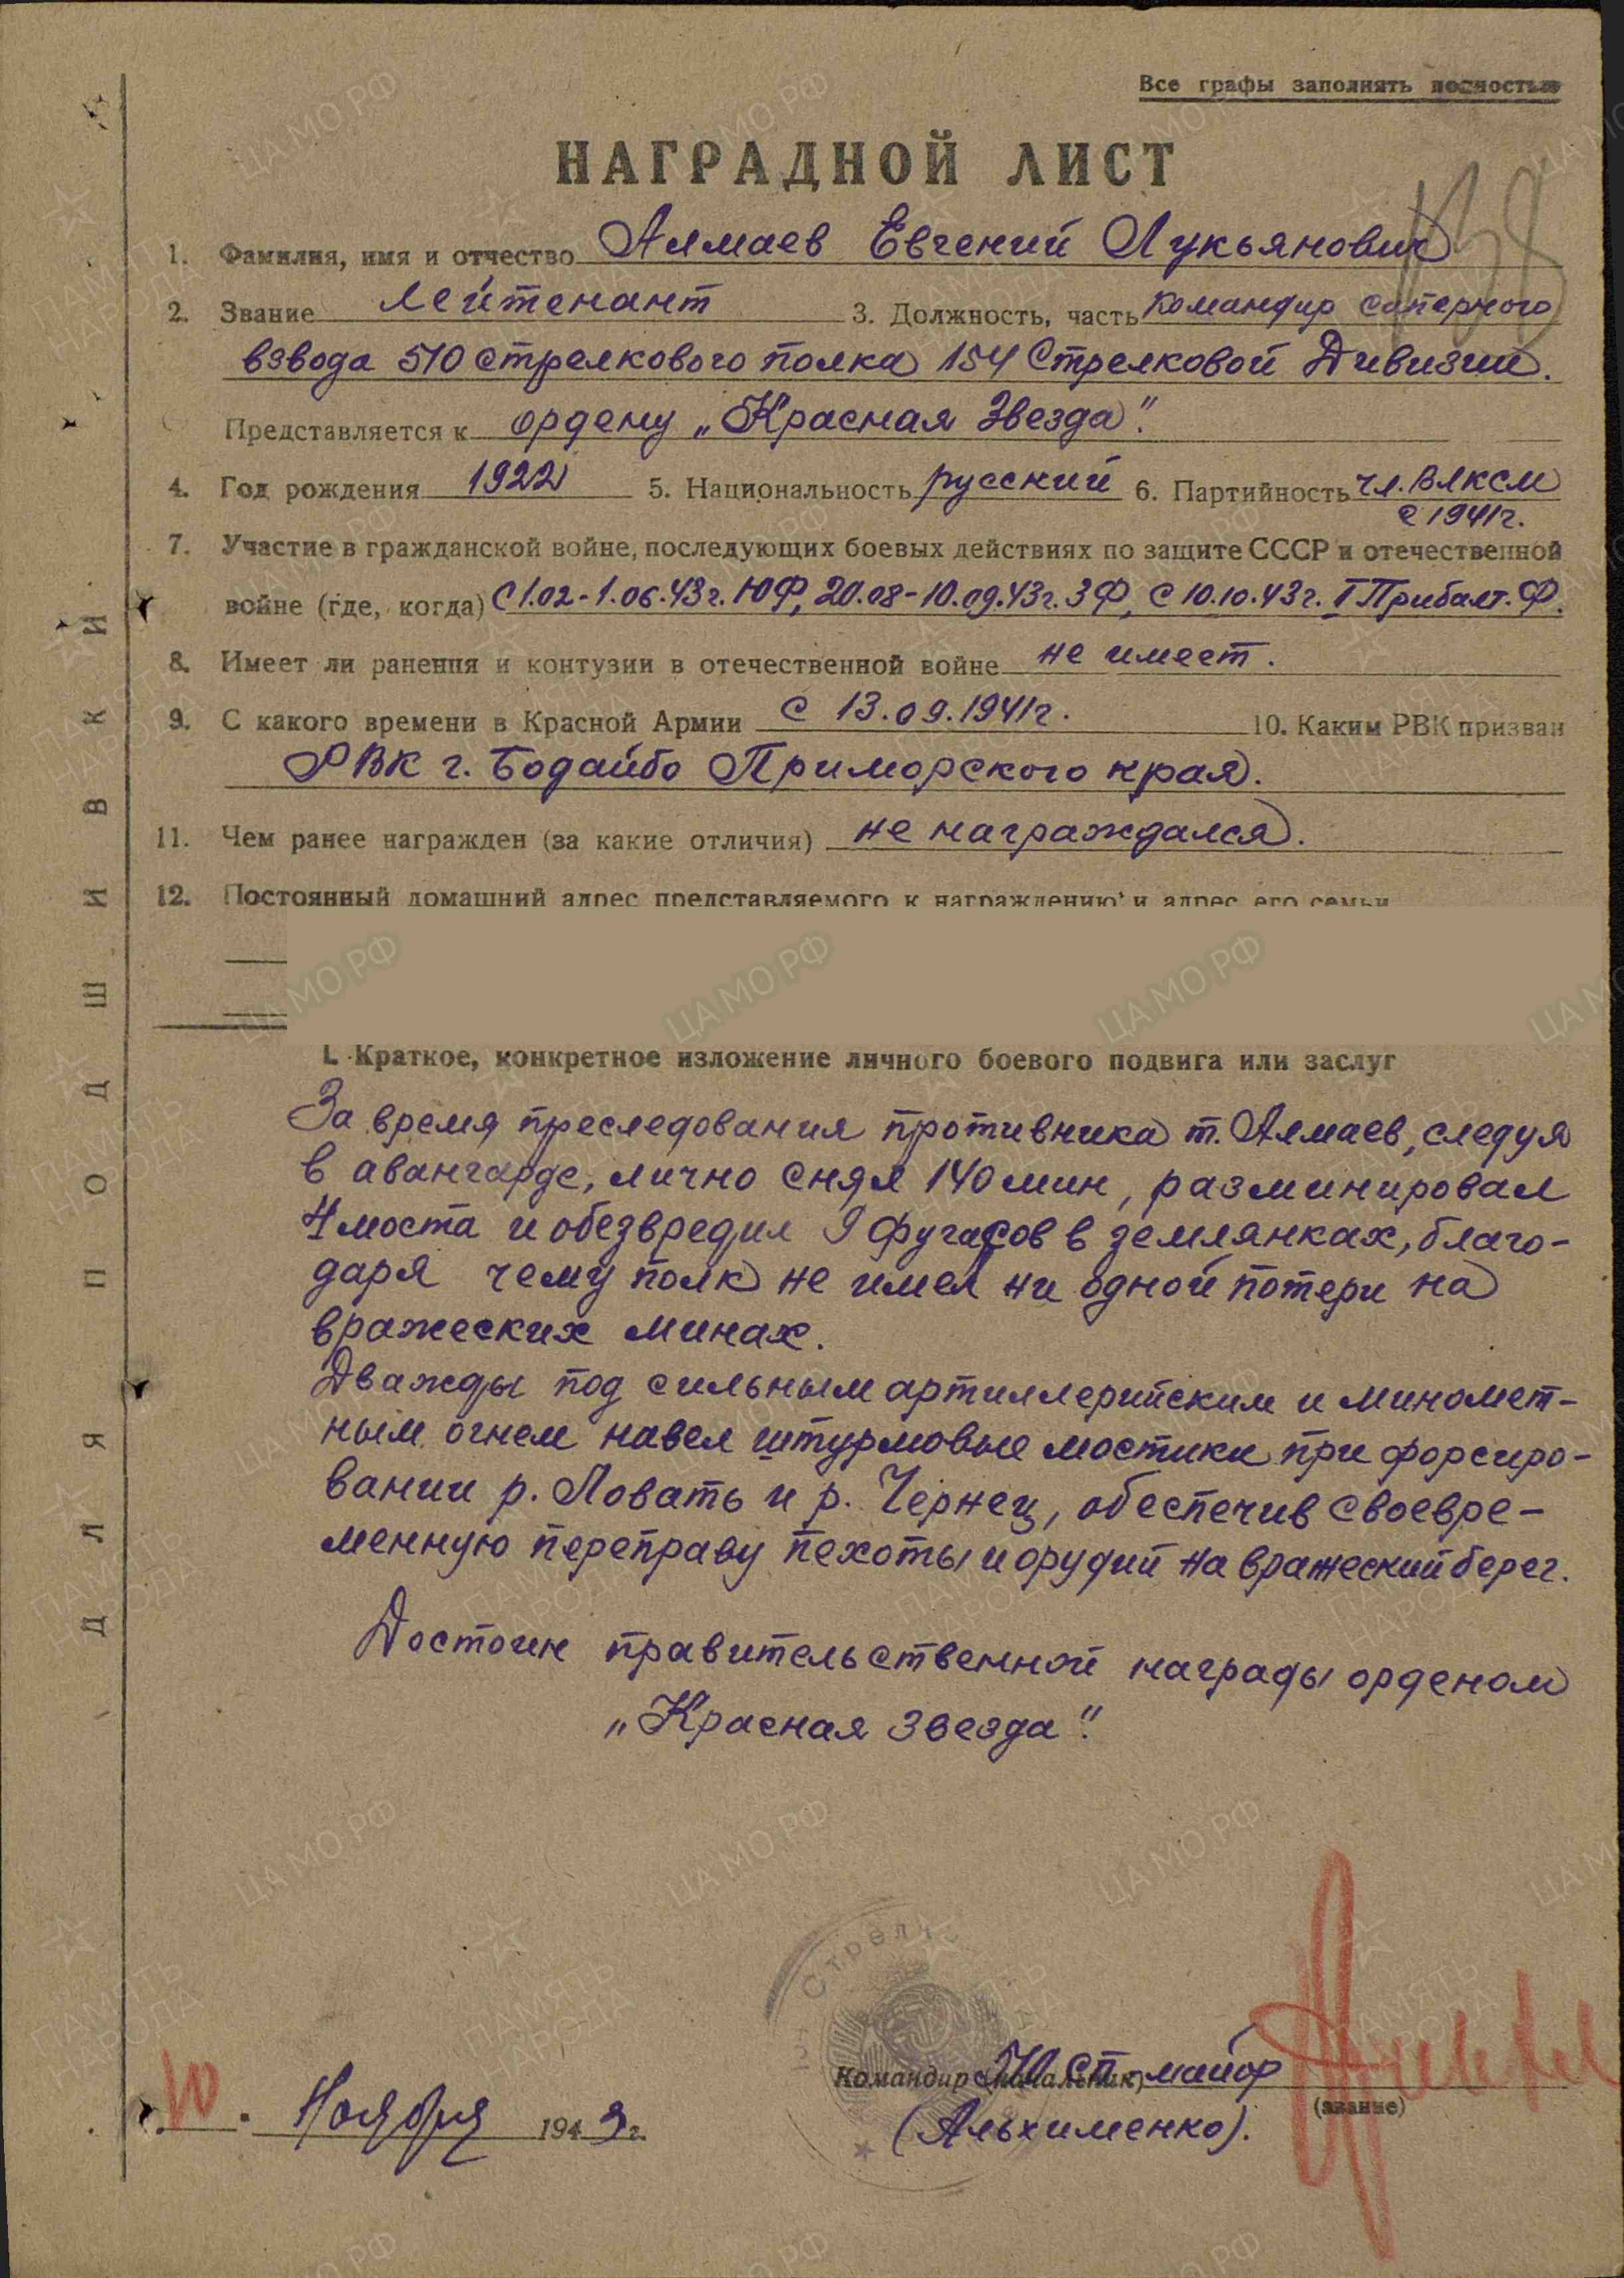 Все графы заполнять полностью
НАГРАДНОЙ ЛИСТ
1. Фамилия, имя и отчество Алмаев Евгений Лукьянович
2. Звание лейтенант 3. Должность, часть командир саперного
взвода 510 стрелкового полка 154 Стрелковой Дивизии.
Представляется к ордену „Красная Звезда".
4. Год рождения 1922 5. Национальность русский 6. Партийность чл. ВЛКСМ
с 1941г.
7. Участие в гражданской войне, последующих боевых действиях по защите СССР и отечественной
войне (где, когда) С 1.02-1.06.43г. ЮФ, 20.08-10.09.43г. ЗФ, с 10.10.43г. I Прибалт. Ф.
8. Имеет ли ранения и контузии в отечественной войне не имеет.
9. С какого времени в Красной Армии с 13.09.1941г. 10. Каким РВК призван
РВК г. Бодайбо Приморского края.
11. Чем ранее награжден (за какие отличия) не награждался.
12. Постоянный домашний адрес представляемого к награждению и адрес его семьи
I. Краткое, конкретное изложение личного боевого подвига или заслуг
За время преследования противника т. Алмаев, следуя
в авангарде, лично снял 140 мин, разминировал
4 моста и обезвредил 9 фугасов в землянках, благо-
даря чему полк не имел ни одной потери на
вражеских минах.
Дважды под сильным артиллерийским и миномет-
ным огнем навел штурмовые мостики при форсиро-
вании р. Ловать и р. Чернец, обеспечив своевре-
менную переправу пехоты и орудий на вражеский берег.
Достоин правительственной награды орденом
„Красная Звезда".
Командир (начальник) 510 сп майор
(звание)
10. Ноября 1943 г.
(Альхименко).
ДЛЯ ПОДШИВКИ
138
ЦА МО РФ
ПАМЯТЬ
НАРОДА